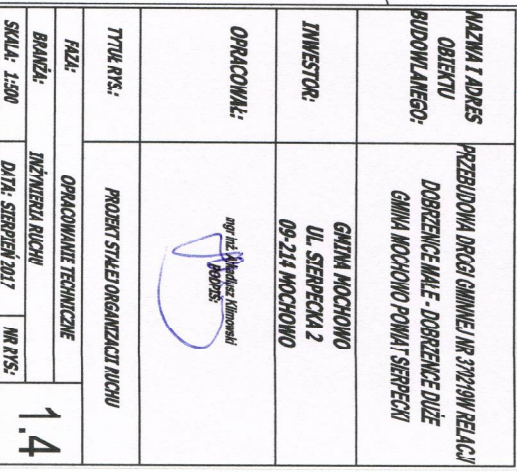 NAZWA I ADRES
OBIEKTU
BUDOWLANEGO:
PRZEBUDOWA DROGI GMINNEJ NR 370219W RELACJI
DOBRZENICE MAŁE - DOBRZENCE DUŻE
GMINA MOCHOWO POWIAT SIERPECKI
INWESTOR:
GMINA MOCHOWO
UL. SIERPECKA 2
09-214 MOCHOWO
OPRACOWAŁ:
mgr inż. Arkadiusz Klimowski
PODPIS:
TYTUŁ RYS.:
PROJEKT STAŁEJ ORGANIZACJI RUCHU
FAZA:
OPRACOWANIE TECHNICZNE
BRANŻA:
INŻYNIERIA RUCHU
SKALA: 1:500
DATA: SIERPIEŃ 2017
NR RYS.:
1.4